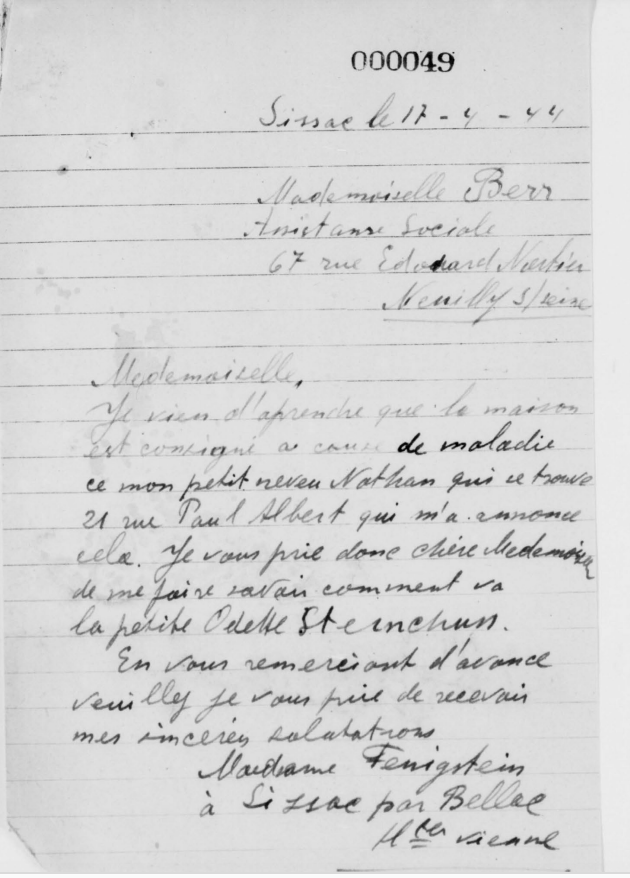 000049
Sissac le 17 - 4 - 44
Mademoiselle Berr
Assistanse Sociale
67 rue Edouard Nortier
Neuilly s/seine
Mademoiselle,
Je vien d'aprendre que la maison
est consigné a cause de maladie
ce mon petit neveu Nathan qui se trouve
21 rue Paul Albert qui m'a annonce
cela. Je vous prie donc chère Medemoiselle
de me faire savoir comment va
la petite Odette Sternchuss.
En vous remerciant d'avance
veuilley je vous prie de recevoir
mes sincères salutations
Madame Fenigstein
à Sissac par Bellac
Hte vienne